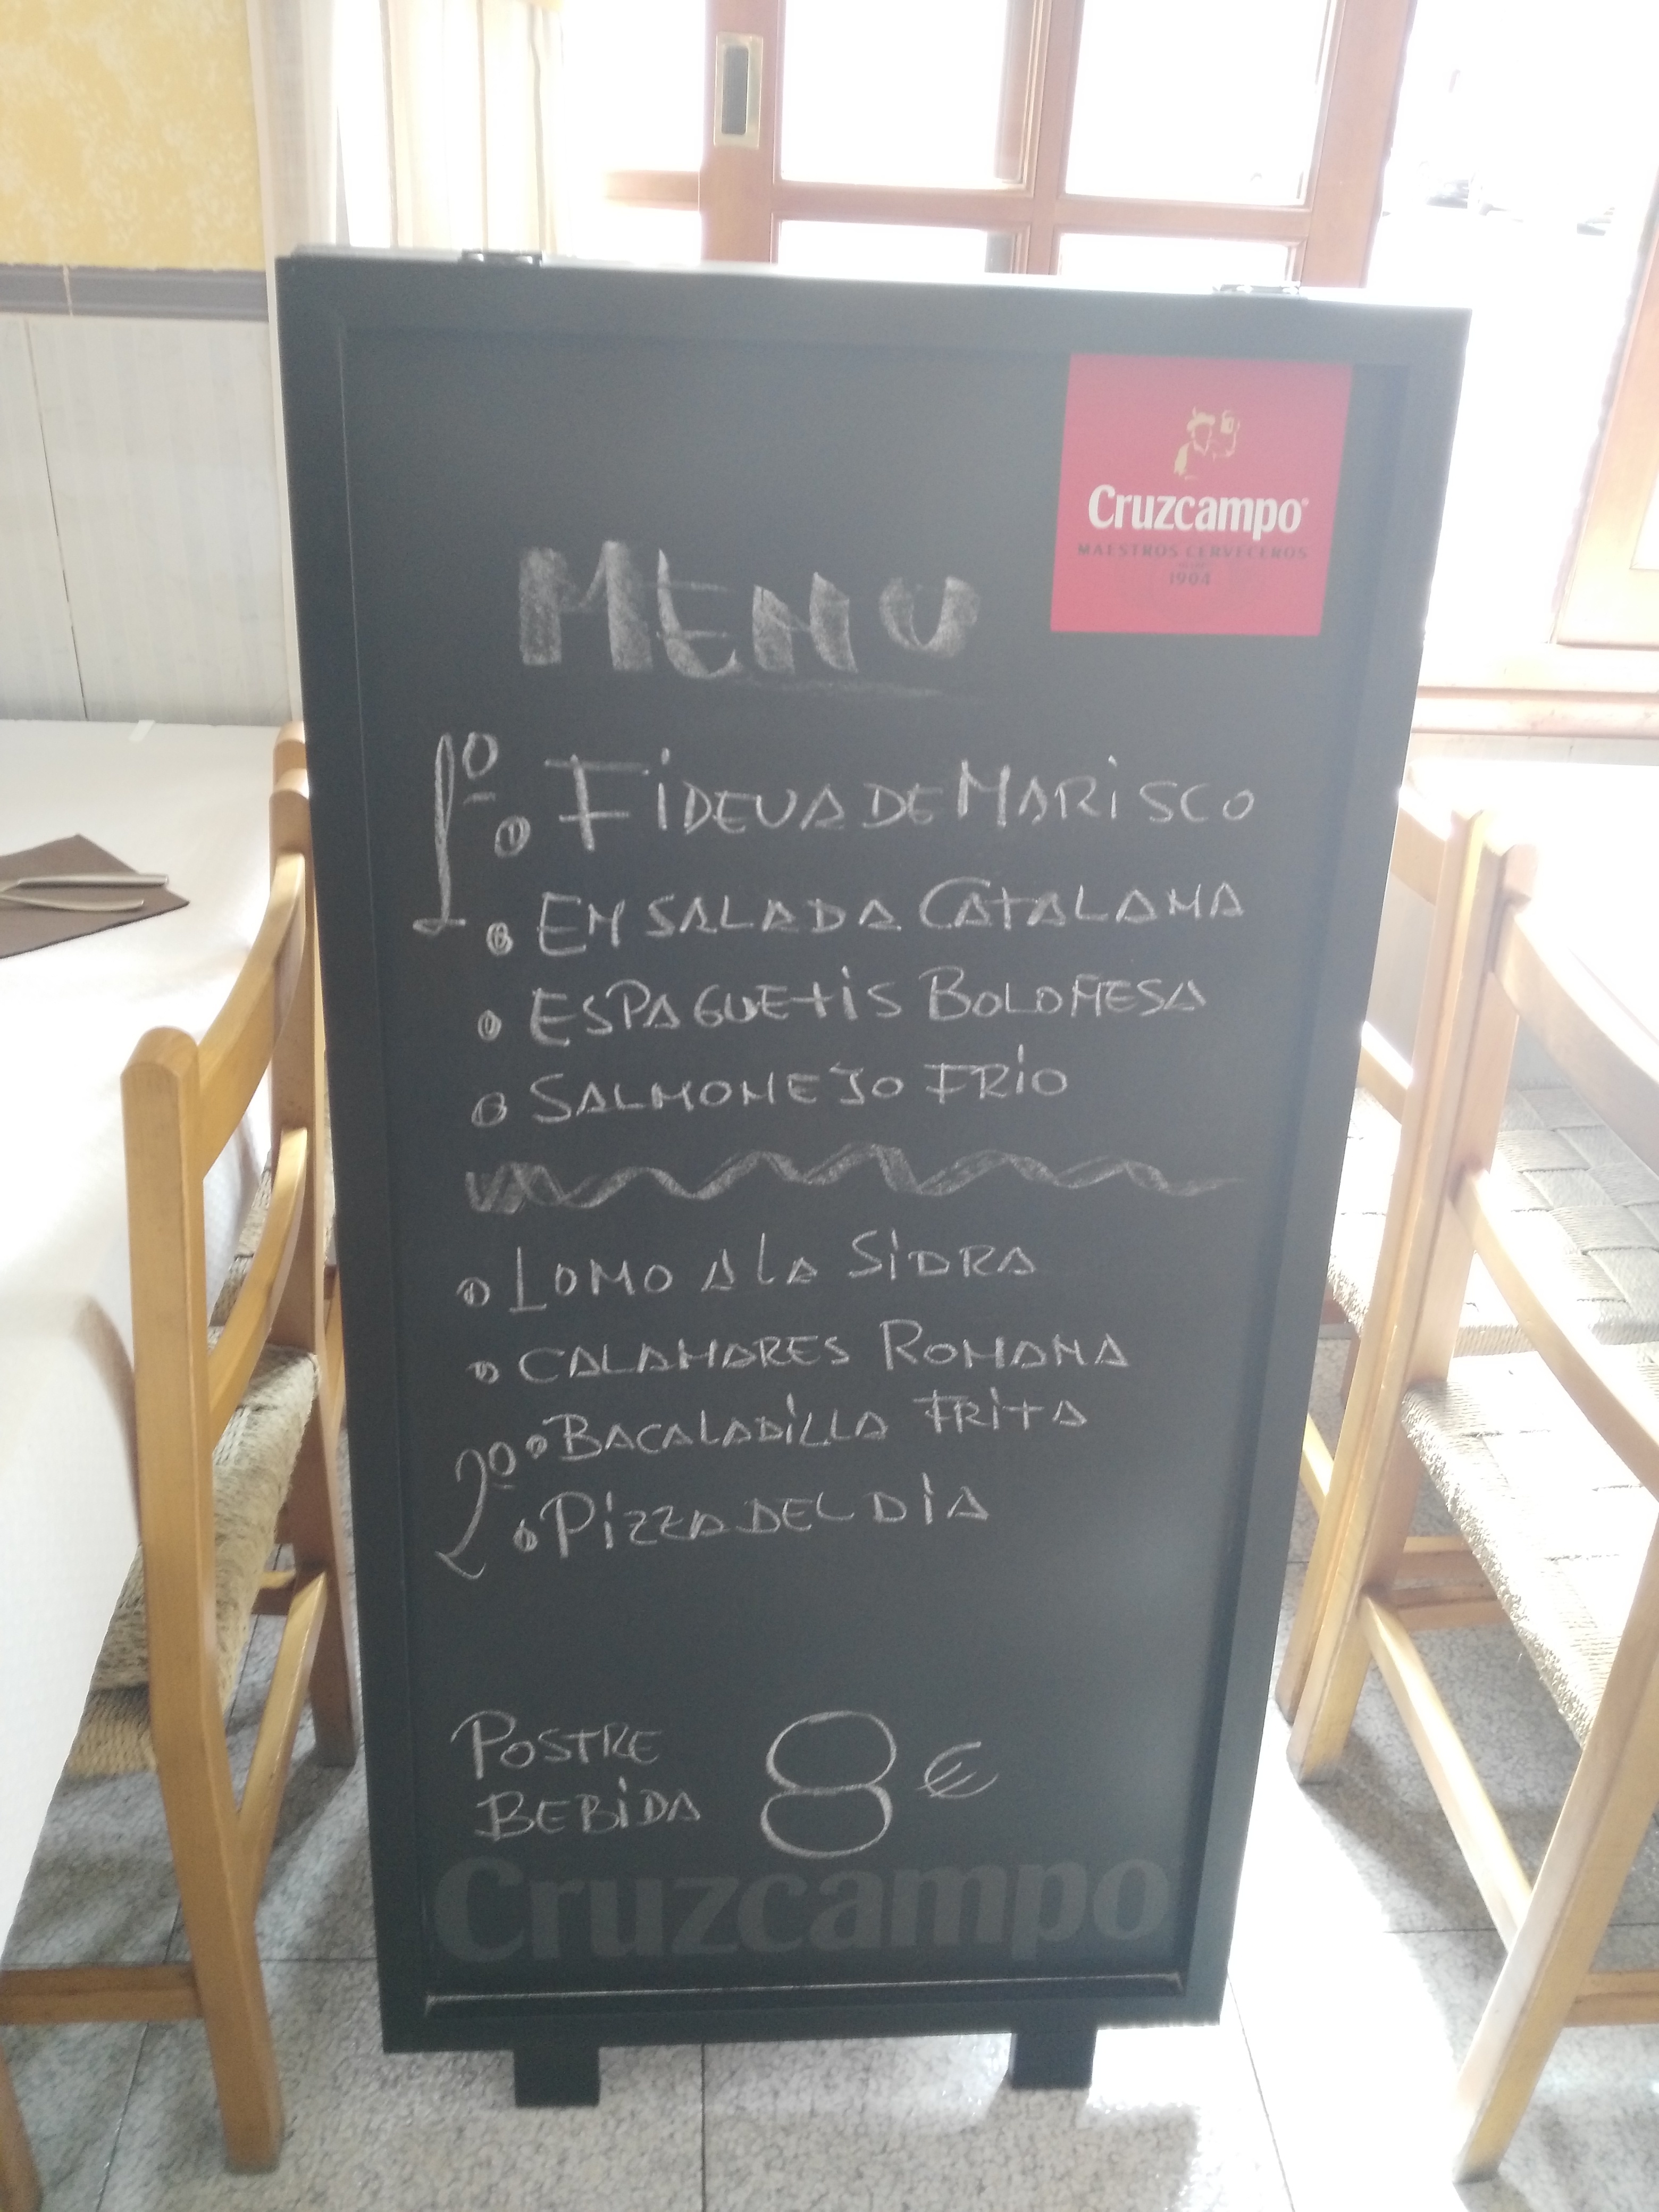 Cruzcampo
MAESTROS CERVECEROS
1904
MENU
1º
FIDEUA DE MARISCO
ENSALADA CATALANA
ESPAGUETIS BOLOÑESA
SALMONEJO FRIO
LOMO A LA SIDRA
CALAMARES ROMANA
2º
BACALADILLA FRITA
PIZZA DEL DIA
POSTRE
BEBIDA
8 €
Cruzcampo